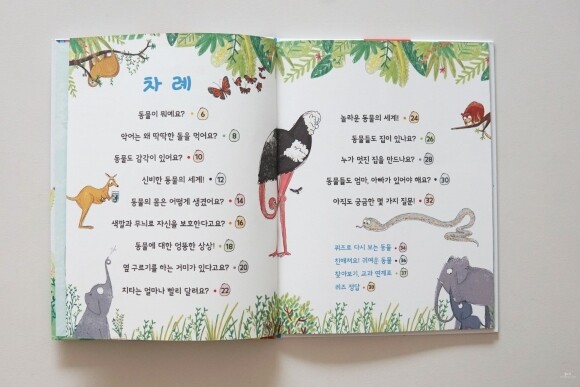 차례
동물이 뭐예요? 6
악어는 왜 딱딱한 돌을 먹어요? 8
동물도 감각이 있어요? 10
신비한 동물의 세계! 12
동물의 몸은 어떻게 생겼어요? 14
색깔과 무늬로 자신을 보호한다고요? 16
동물에 대한 엉뚱한 상상! 18
옆 구르기를 하는 거미가 있다고요? 20
치타는 얼마나 빨리 달려요? 22
놀라운 동물의 세계! 24
동물들도 집이 있나요? 26
누가 멋진 집을 만드나요? 28
동물들도 엄마, 아빠가 있어야 해요? 30
아직도 궁금한 몇 가지 질문! 32
퀴즈로 다시 보는 동물 34
친해져요! 귀여운 동물 36
찾아보기, 교과 연계표 37
퀴즈 정답 38